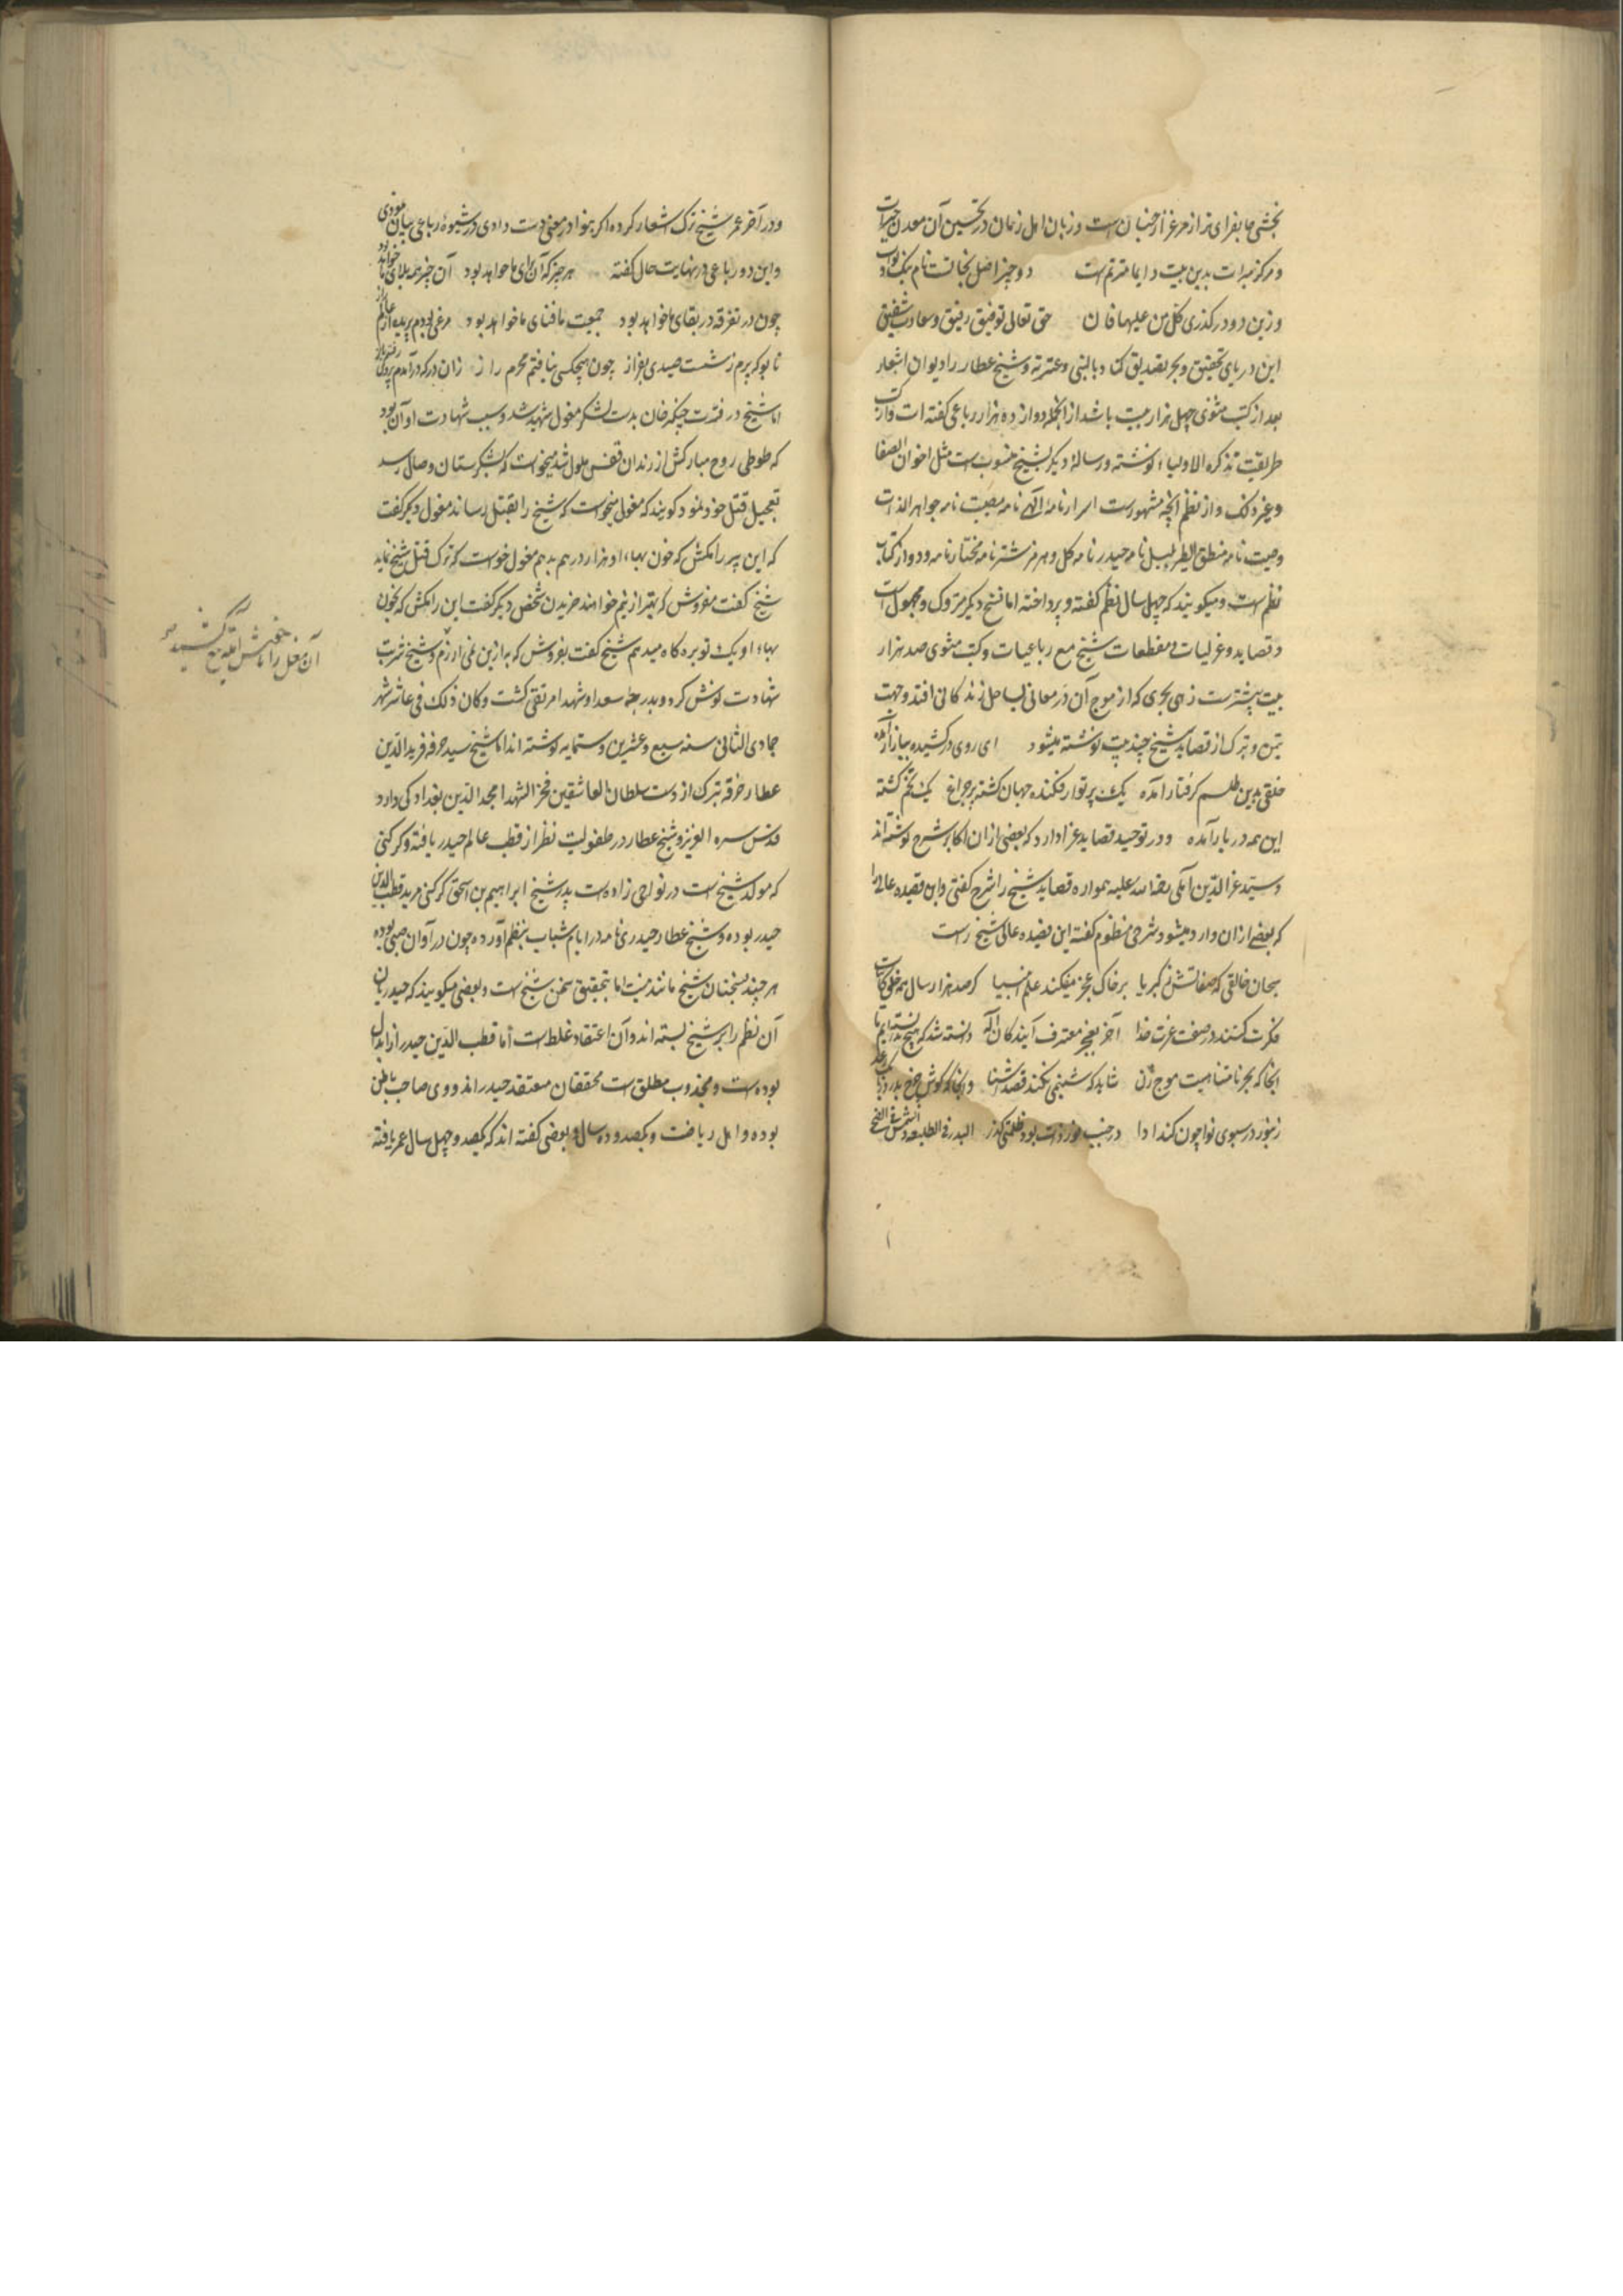 بخشی جا بفزای تر از مرغزار جنان است و زبان اهل زمان در تحسین آن معدن خیرات
و مرکز مبرات بدین بیت دایما مترنم است دو چیز اصل نجاتست نام نیک و ثواب
وزین دو در گذری کل من علیها فان حق تعالی توفیق رفیق و سعادت شفیق
این دریای تحقیق و بحر تصدیق کناد بالنبی و عترته و شیخ عطار را دیوان اشعار
بعد از کتب مثنوی چهل هزار بیت باشد از انجمله دوازده هزار رباعی گفته است و از کتب
طریقت تذکرة الاولیاء نوشته و رسالهٔ دیگر بشیخ منسوبست مثل اخوان الصفا
و غیر ذلک و از نظم آنچه مشهورست اسرارنامه الهی نامه مصیبت نامه جواهر الذات
وصیت نامه منطق الطیر بلبل نامه حیدر نامه گل و هرمز شتر نامه مختار نامه و دوازده کتاب
نظم است و میگویند که چهل سال نظم گفته و پرداخته اما نسخ دیگر متروک و مجهول است
و قصاید و غزلیات و مقطعات شیخ مع رباعیات و کتب مثنوی صد هزار
بیت بیشترست زهی بحری که از موج آن در معانی بساحل زندگانی افتد و جهت
تیمن و تبرک از قصاید شیخ چند بیت نوشته میشود ای روی درکشیده ببازار آمده
خلقی بدین طلسم گرفتار آمده یک پرتو او فکنده جهان گشته پر چراغ یک تخم کشته
این همه در بار آمده و در توحید قصاید غرا دارد که بعضی از ان اکابر شرح نوشته اند
و سید عزالدین آملی رحمة الله علیه همواره قصاید شیخ را شرح گفتی و این قصیده عالی را
که بعضی از ان وارد میشود شرحی منظوم گفته این قصیده عالی شیخ راست
سبحان خالقی که صفاتش ز کبریا بر خاک عجز میفکند علم انبیا گر صد هزار سال همه خلق کاینات
فکرت کنند در صفت عزت خدا آخر بعجز معترف آیند کای اله دانسته شد که هیچ ندانسته ایم ما
آنجا که بحر نامتناهیست موج زن شاید که شبنمی نکند قصد آشنا و آنجا که گوش چرخ بدرد ز بانگ رعد
زنبور در سبوی نوا چون کند ادا در جنب نور ذات بود ظلمتی کدر البدر فی الطلیعة و الشمس فی الضحی
و در آخر عمر شیخ ترک اشعار کرده اگر بنوادر معنی دست دادی در شیوهٔ رباعی بیان نمودی
و این دو رباعی در نهایت حال گفته هر چیز که آن برای ما خواهد بود آن چیز همه بلای ما خواهد بود
چون در تفرقه در بقای ما خواهد بود جمعیت ما فنای ما خواهد بود مرغی بودم پریده از عالم راز
تا بو که برم زشست صیدی بفراز چون هیچکسی نیافتم محرم راز زان در که درآمدم برون رفتم باز
اما شیخ در فترت چنگیز خان بدست لشکر مغول شهید شد و سبب شهادت او آن بود
که طوطی روح مبارکش از زندان قفس ملول شد میخواست که بشکرستان وصال رسد
تعجیل قتل خود نمود گویند که مغولی میخواست که شیخ را بقتل رساند مغول دیگر گفت
که این پیر را مکش که خون بهاء او هزار درهم بدهم مغول خواست که ترک قتل شیخ نماید
شیخ گفت مفروش که بهتر ازینم خواهند خریدن شخص دیگر گفت این را مکش که بخون
بهاء او یک توبره کاه میدهم شیخ گفت بفروش که به ازین نمی ارزم و شیخ شربت
شهادت نوش کرد و بدرجهٔ سعدا و شهدا مرتقی گشت و کان ذلک فی عاشر شهر
جمادی الثانی سنه سبع و عشرین و ستمایه نوشته اند اما شیخ سید خرقه فرید الدین
عطار خرقه تبرک از دست سلطان العاشقین فخر الشهدا مجد الدین بغدادی دارد
قدس سره العزیز و شیخ عطار در طفولیت نظر از قطب عالم حیدر یافته و کدکنی
که مولد شیخ است در نواحی زاوه است پدر شیخ ابراهیم بن اسحق کدکنی مرید قطب الدین
حیدر بوده و شیخ عطار حیدری نامه در ایام شباب بنظم آورده چون در آوان صبی بوده
هر چند بسخنان شیخ مانند نیست اما بتحقیق سخن شیخ است و بعضی میگویند که حیدریان
آن نظم را بر شیخ بسته اند و آن اعتقاد غلط است اما قطب الدین حیدر از ابدال
بوده است و مجذوب مطلق است محققان معتقد حیدر اند و وی صاحب باطن
بوده و اهل ریاضت و یکصد و ده سال و بعضی گفته اند که یکصد و چهل سال عمر یافته